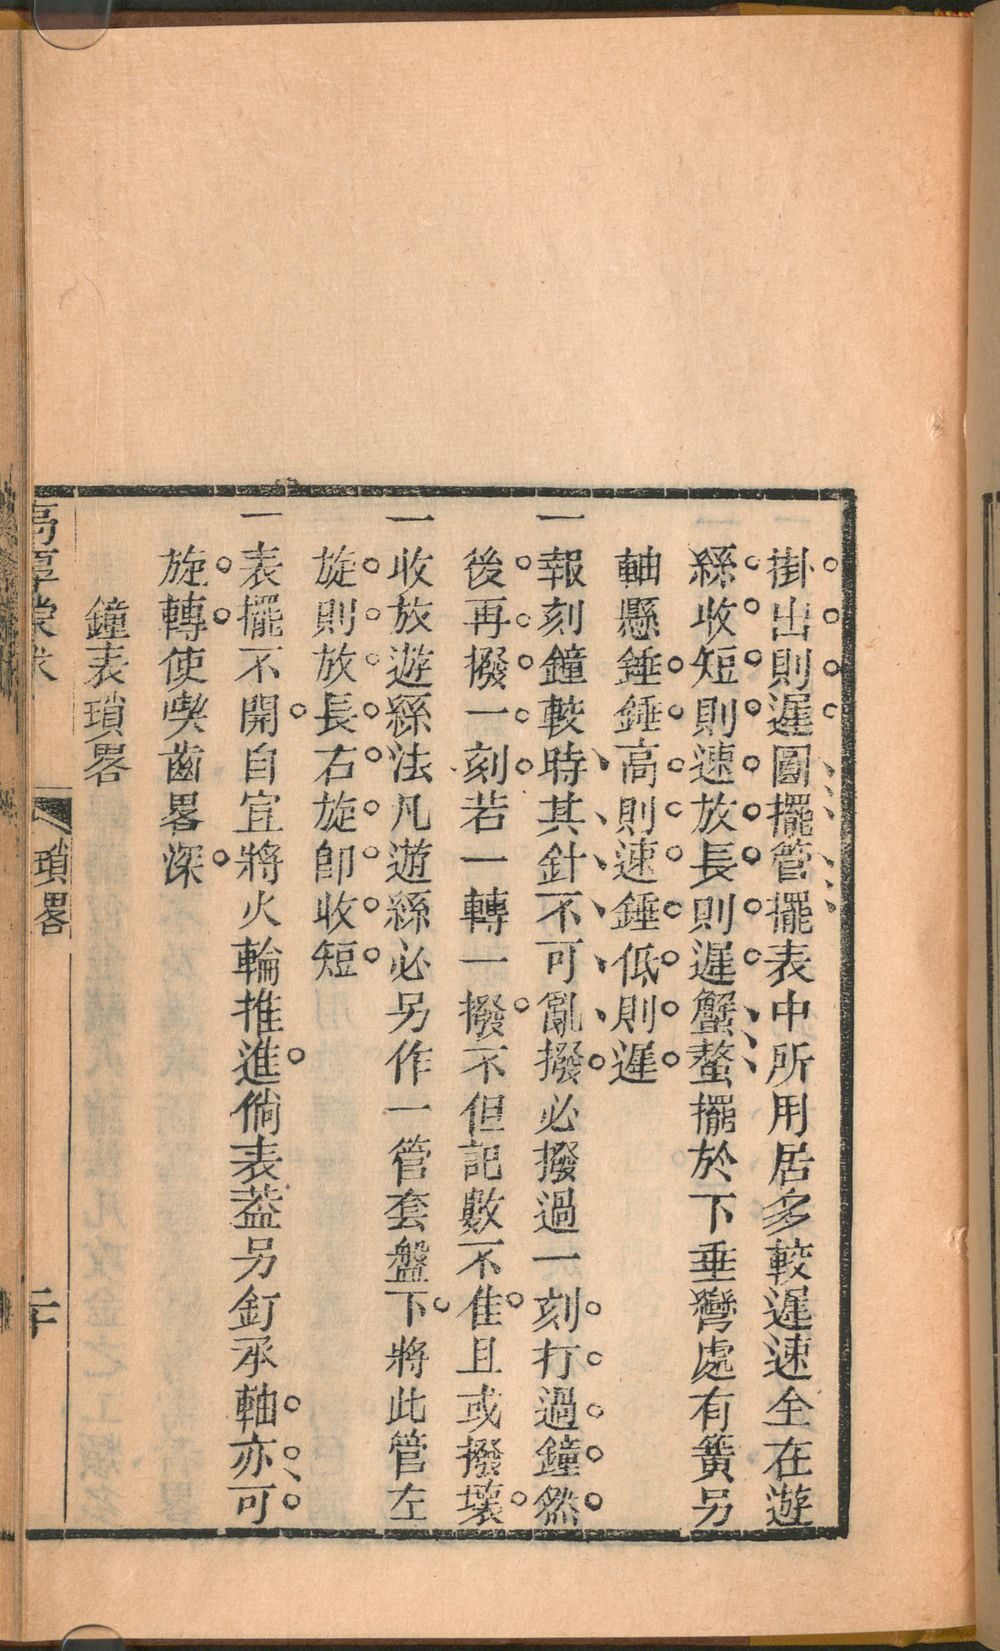 掛出則遲圓擺管擺表中所用居多較遲速全在遊
繇收短則速放長則遲蟹螯擺於下垂彎處有簧另
軸懸錘錘高則速錘低則遲
一報刻鐘較時其針不可亂撥必撥過一刻打過鐘然
後再撥一刻若一轉一撥不但記數不準且或撥壞
一收放遊絲法凡遊絲必另作一管套盤下將此管左
旋則放長右旋卽收短
一表擺不開自宜將火輪推進倘表葢另釘承軸亦可
旋轉使喫齒畧深
鐘表瑣畧
高厚蒙求
瑣畧
二十